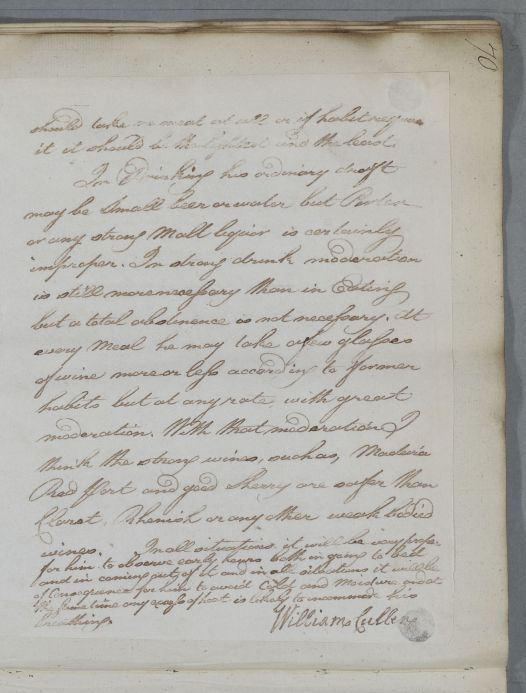 40
should take no meat at all or if habit require
it it should be the lightest and the least.
In Drinking his ordinary draft
may be Small beer or water but Porter
or any strong Malt liquor is certainly
improper. In strong drink moderation
is still more necessary than in Eating
but a total abstinence is not necessary. At
every Meal he may take a few glasses
of wine more or less according to former
habits but at any rate with great
moderation. With that moderation I
think the strong wines, such as, Madeira
Red Port and good Sherry are safer than
Claret, Rhenish or any other weak bodied
wines. In all situations it will be very proper
for him to observe early hours both in going to bed
and in coming out of it and in all situations it will be
of Consequence for him to avoid Cold and Moisture, and at
the same time any excess of heat is likely to his
breathing.
William Cullen